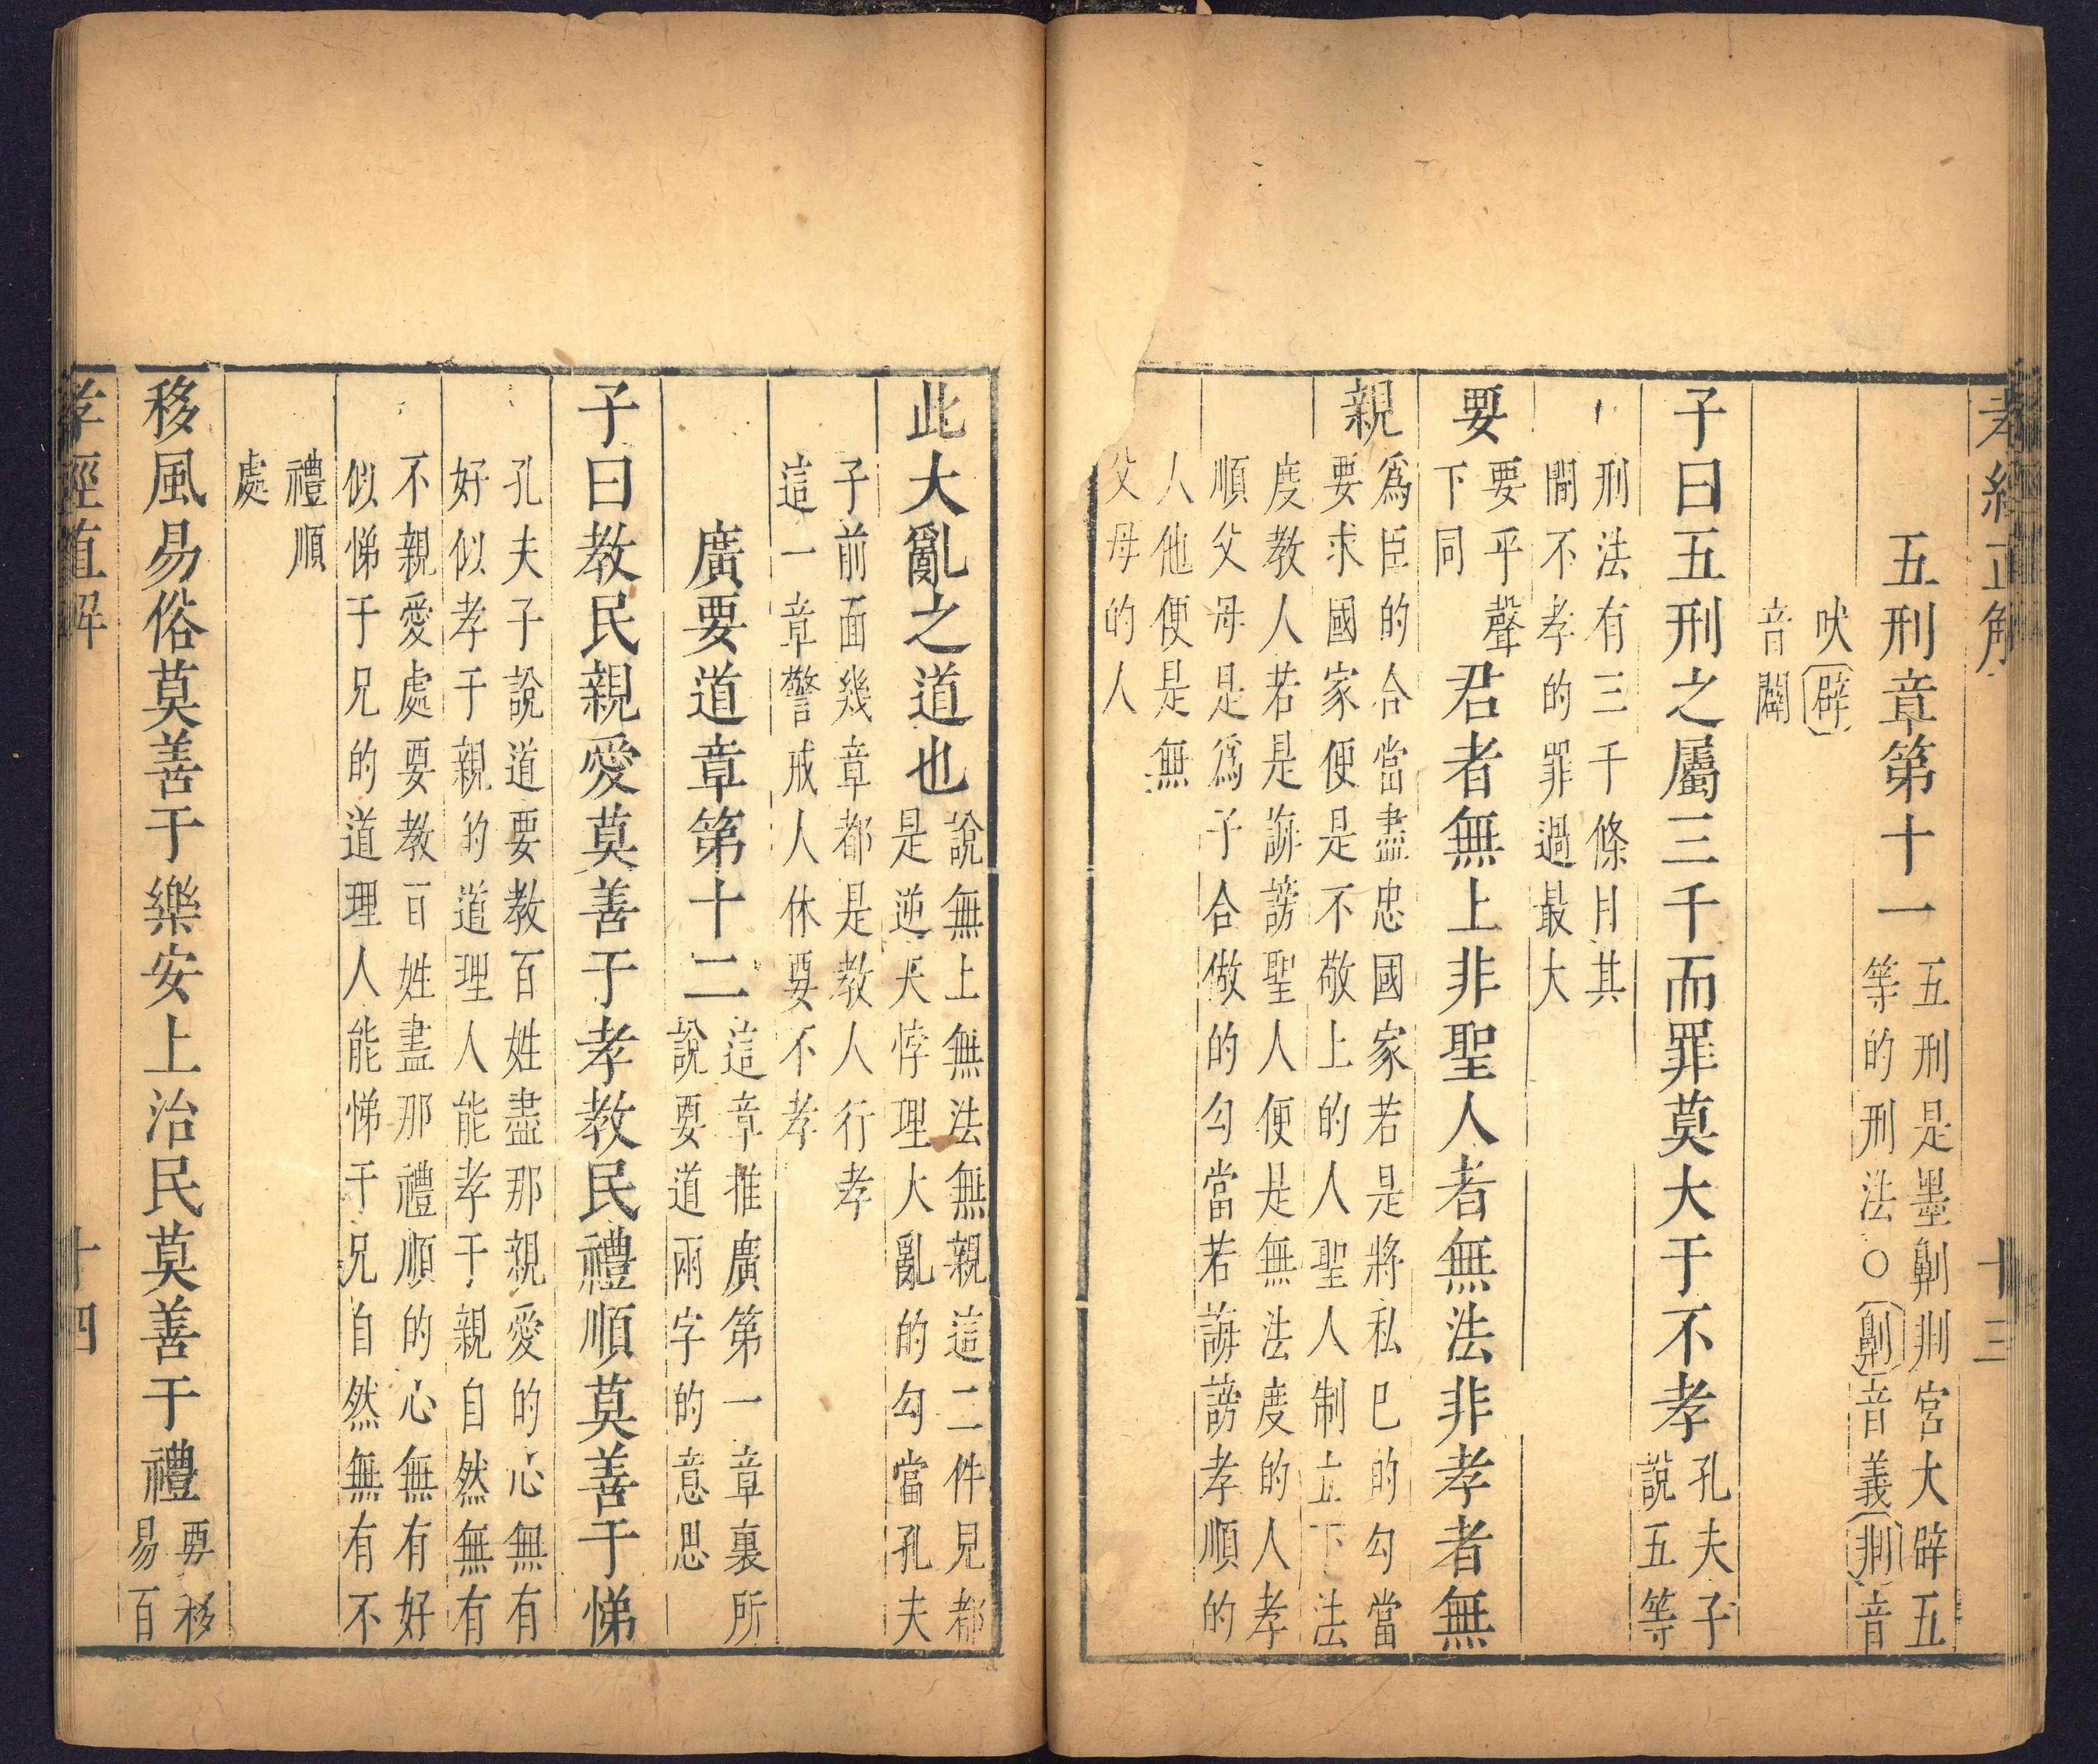 孝經直解 十三
五刑章第十一
五刑是墨劓剕宮大辟五
等的刑法○劓音義剕音
吠辟
音闢
子曰五刑之屬三千而罪莫大于不孝
孔夫子
說五等
刑法有三千條目其
閒不孝的罪過最大
要
要平聲
下同
君者無上非聖人者無法非孝者無
親
爲臣的合當盡忠國家若是將私已的勾當
要求國家便是不敬上的人聖人制立下法
度教人若是誹謗聖人便是無法度的人孝
順父母是爲子合做的勾當若誹謗孝順的
人他便是無
父母的人
此大亂之道也
說無上無法無親這二件見都
是逆天悖理大亂的勾當孔夫
子前面幾章都是教人行孝
這一章警戒人休要不孝
廣要道章第十二
這章推廣第一章裏所
說要道兩字的意思
子曰教民親愛莫善于孝教民禮順莫善于悌
孔夫子說道要教百姓盡那親愛的心無有
好似孝于親的道理人能孝于親自然無有
不親愛處要教百姓盡那禮順的心無有好
似悌于兄的道理人能悌于兄自然無有不
禮順
處
移風易俗莫善于樂安上治民莫善于禮
要移
易百
孝經直解 十四